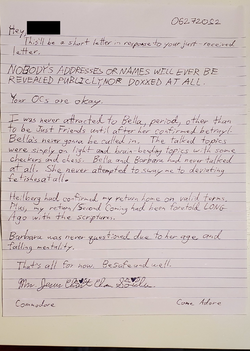 06272022
Hey,
This'll be a short letter in response to your just received
letter.
NOBODY'S ADDRESSES OR NAMES WILL EVER BE
REVEALED PUBLICLY NOR DOXXED AT ALL.
Your OCs are okay.
I was never attracted to Bella, period, other than
to be Just Friends until after her confirmed betrayl.
Bella's never gonna be called in. The talked topics
were simply on light and brain-healing topics w/ in home
checkers and chess. Bella and Barbara had never talked
at all. She never attempted to sway me to deviating
fetishes at all.
Heilberg had confirmed my return home on valid terms.
Plus, my return/Second Coming had been foretold LONG
ago with the scriptures.
Barbara was never questioned due to her age and
failing mentality.
That's all for now. Be safe and well.
Jesus
Commodore Come Adore